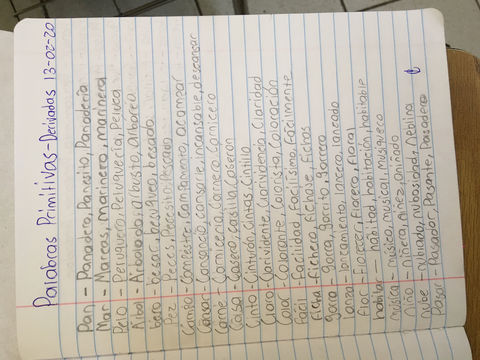 Palabras Primitivas-Derivadas 13-02-20
Pan - Panadero, Panesito, Panaderia
Mar - Mareas, marinero, marinera
Pelo - Peluquero, Peluqueria, Peluca
Arbol - Arbolada, arbusto, arborea
beso - besar, besuqueo, besado
Pez - Peces, Pecesito, Pescado
Campo - Campestre, Campamento, acampar
Cansar - Cansancio, cansarse, incansable, descansar
Carne - Carniceria, Carnero, Carnicero
Casa - Casero, casilla, Caseron
Cinto - Cinturon, Cintas, Cintillo
Claro - Clarividente, Clarividencia, Claridad
Color - Colorante, Colorista, Coloración
Facil - Facilidad, Facilismo, Fácilmente
Ficha - Fichero, fichase, fichas
gorra - gorra, gorrito, gorrero
lanza - lanzamiento, lancero, lanceado
Flor - Florecer, florero, floral
habitar - habitad, habitación, habitable
musica - músico, musical, musiquero
Niño - Niñera, niñez, aniñado
nube - nublado, nubosidad, Neblina
Pasar - Pasador, Pasante, Pasadero